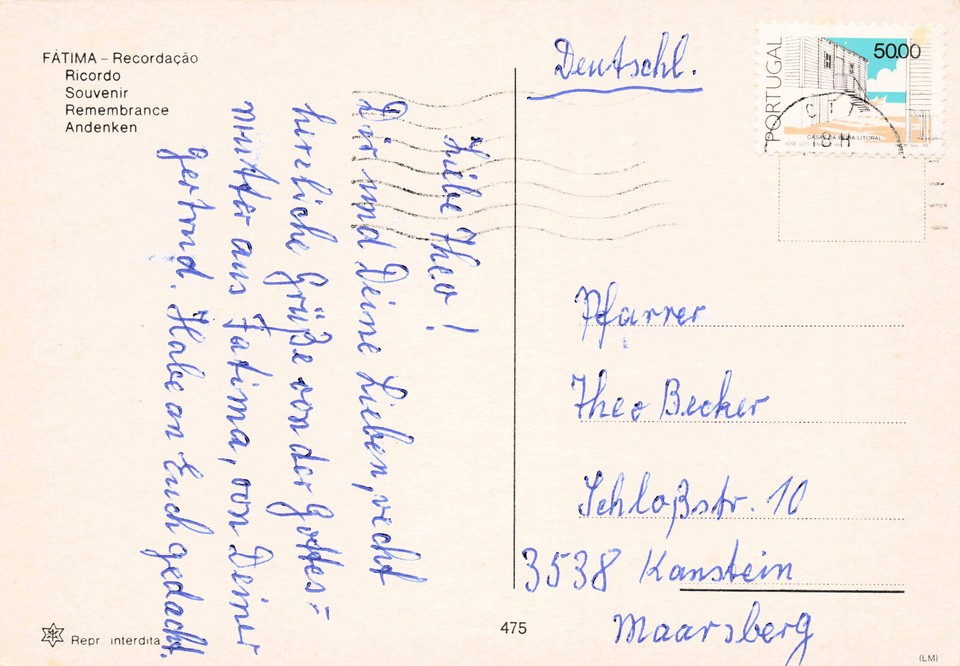 FÁTIMA – Recordação
Ricordo
Souvenir
Remembrance
Andenken
Liebe Theo!
Dir und Deine Lieben, recht
herzliche Grüße von der Gottes=
mutter aus Fatima, von Deiner
Gertrud. Habe an Euch gedacht.
Deutschl.
PORTUGAL
50.00
CASAS DA BEIRA LITORAL
CTT
18 H
Pfarrer
Theo Becker
Schloßstr. 10
3538 Kanstein
Maarsberg
Repr. interdita
475
(LM)